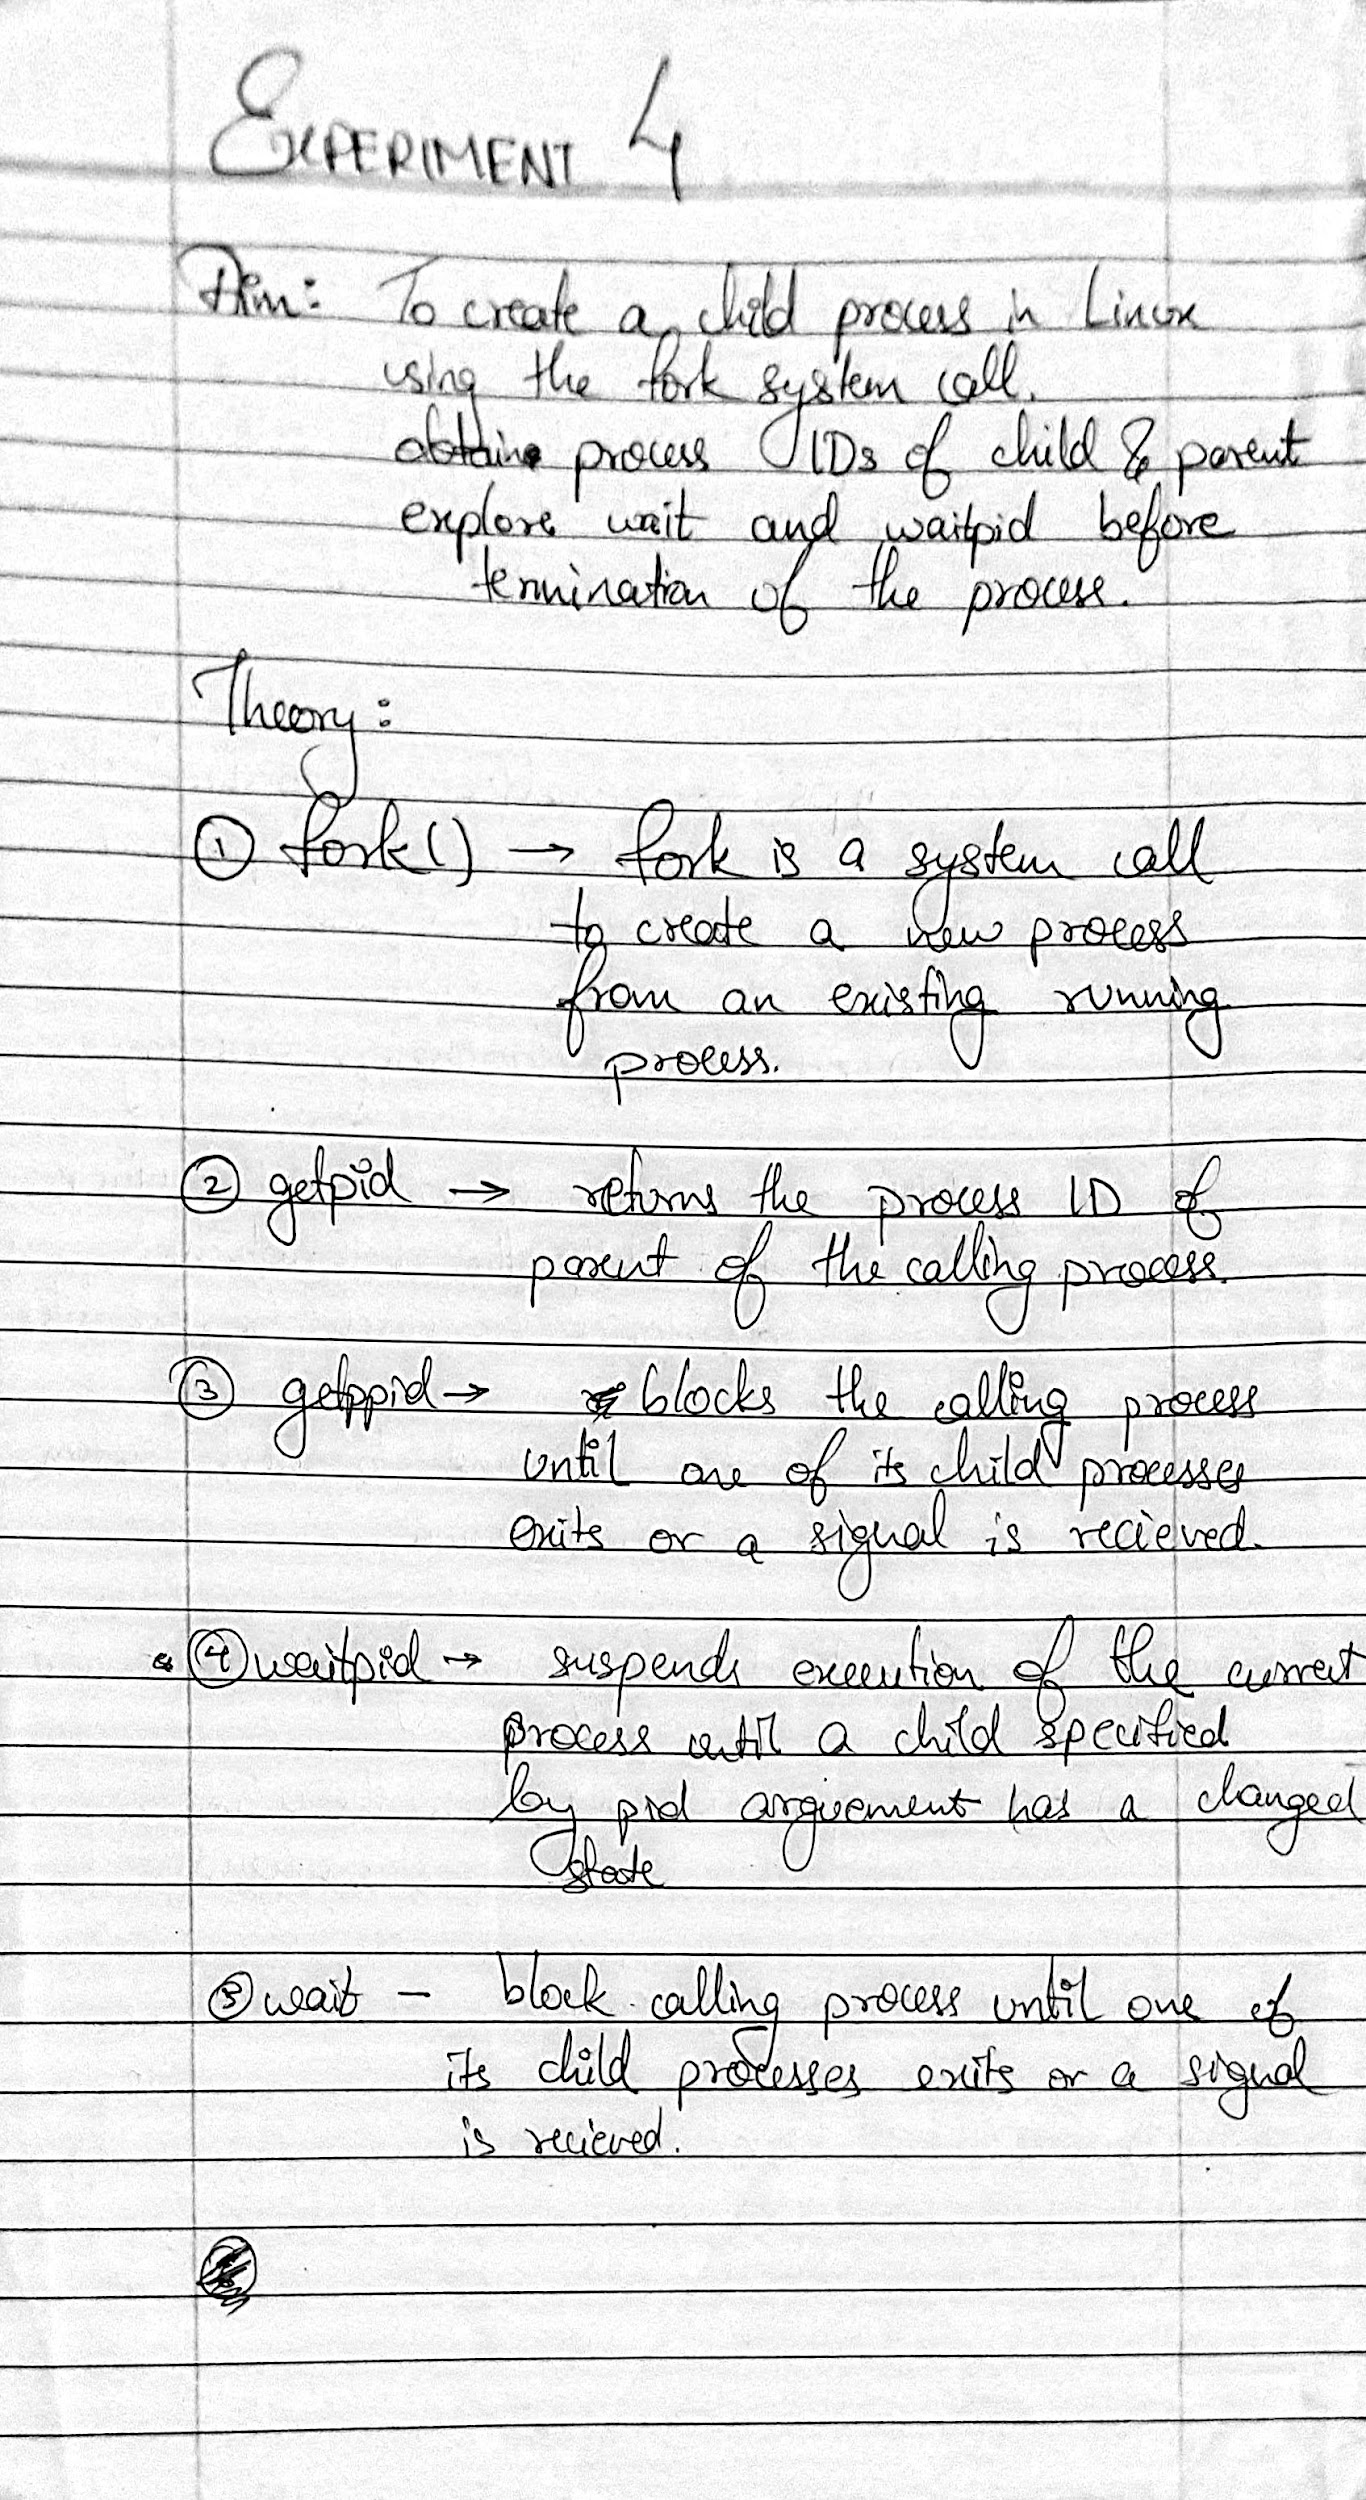 EXPERIMENT 4
Aim: To create a child process in Linux
using the fork system call.
obtain process IDs of child & parent
explore wait and waitpid before
termination of the process.
Theory:
① fork() → fork is a system call
to create a new process
from an existing running
process.
② getpid → returns the process ID of
parent of the calling process.
③ getppid → blocks the calling process
until one of its child processes
exits or a signal is recieved.
④ waitpid → suspends execution of the current
process until a child specified
by pid arguement has a changed
state
⑤ wait - block calling process until one of
its child processes exits or a signal
is recieved.